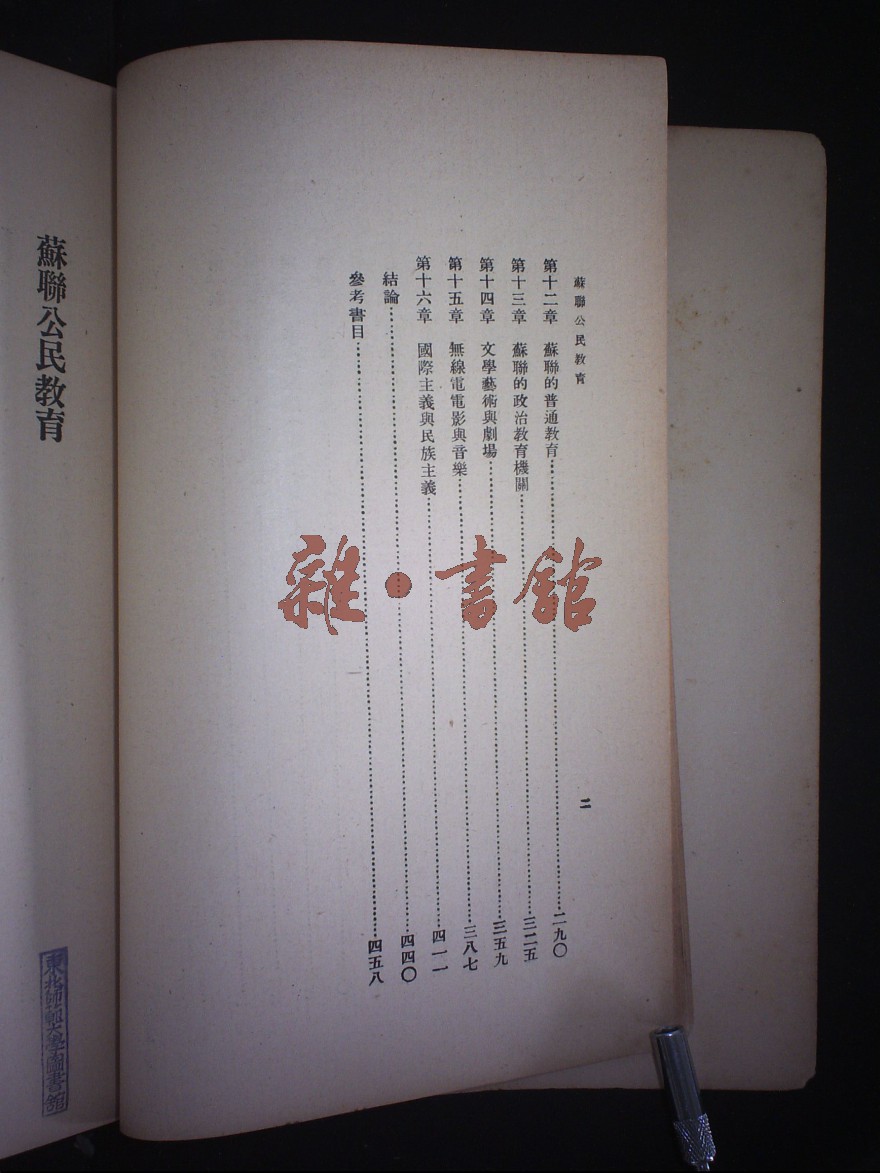 蘇聯公民教育
二
第十二章 蘇聯的普通教育……二九〇
第十三章 蘇聯的政治教育機關……三二五
第十四章 文學藝術與劇場……三五九
第十五章 無線電電影與音樂……三八七
第十六章 國際主義與民族主義……四一一
結論……四四〇
參考書目……四五八
蘇聯公民教育
東北師範大學圖書館
雜·書館